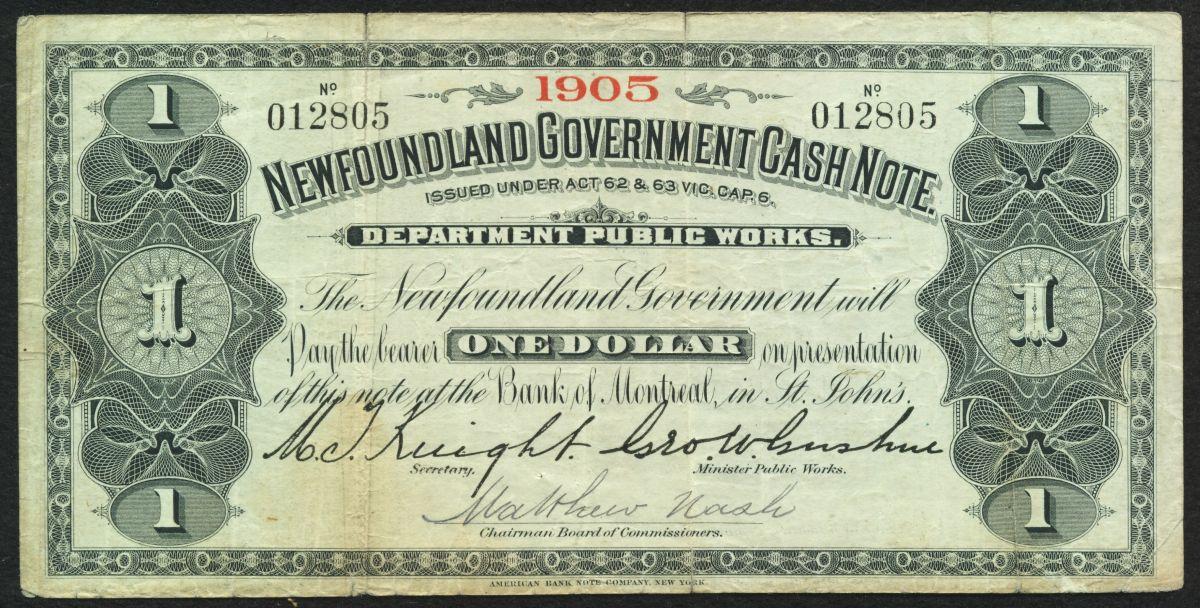 1 1905 1
Nº 012805 Nº 012805
NEWFOUNDLAND GOVERNMENT CASH NOTE.
ISSUED UNDER ACT 62 & 63 VIC. CAP. 6.
DEPARTMENT PUBLIC WORKS.
The Newfoundland Government will
1 Pay the bearer ONE DOLLAR on presentation 1
of this note at the Bank of Montreal, in St. John's.
M.J. Knight. Geo. W. Gushue
Secretary. Minister Public Works.
1 Matthew Nash 1
Chairman Board of Commissioners.
AMERICAN BANK NOTE COMPANY, NEW YORK.